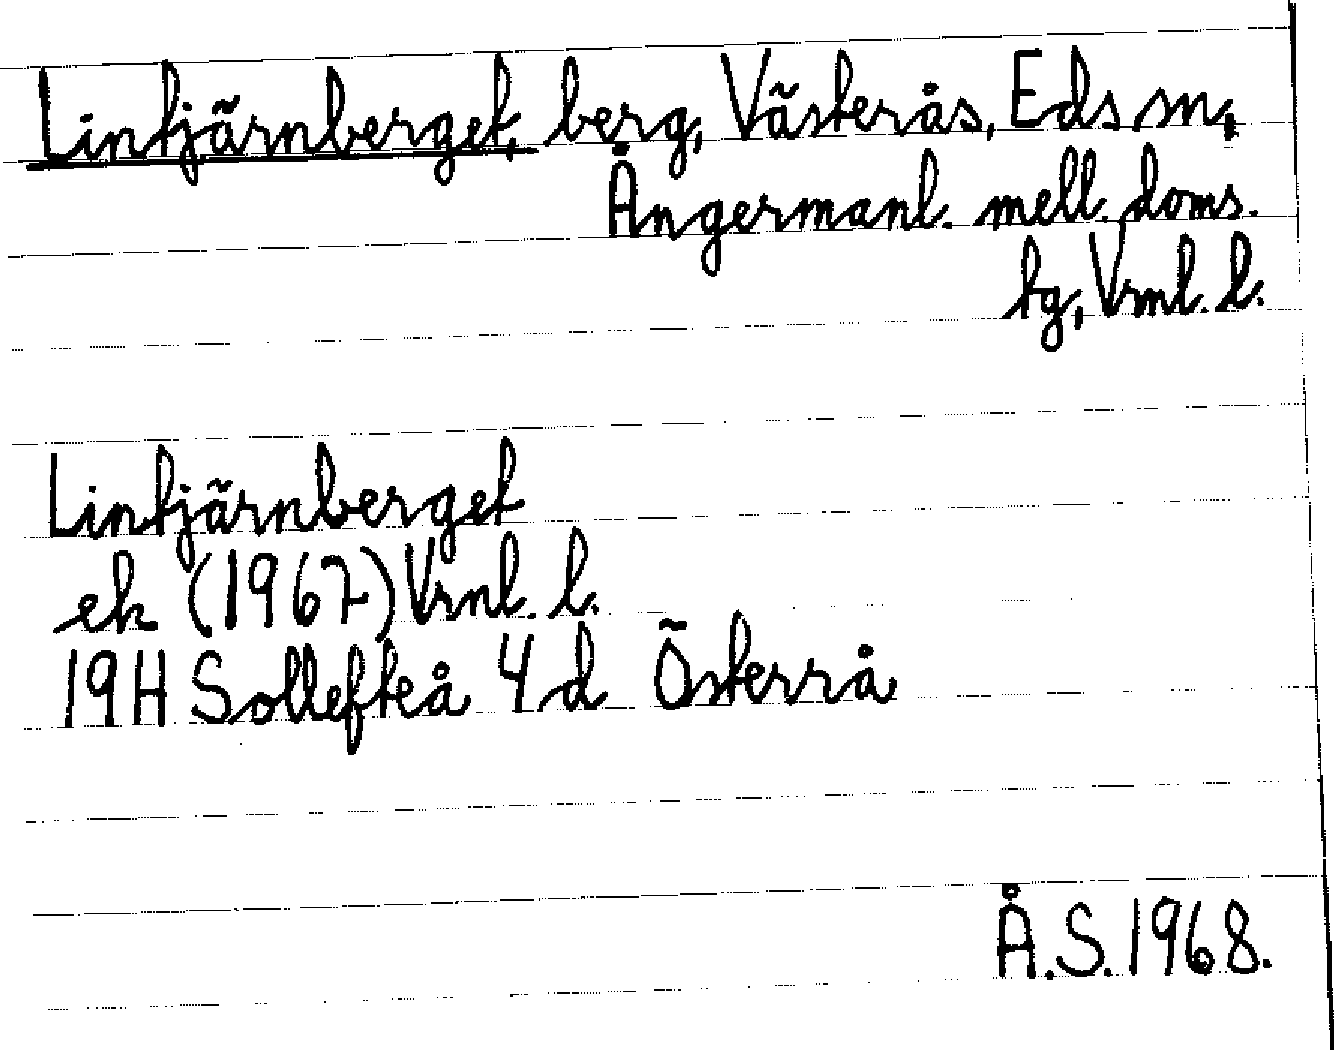 Lintjärnberget, berg, Västerås, Eds sn,
Ångermanl. mell. doms.
tg, Vrnl. l.
Lintjärnberget
ek (1967) Vrnl. l.
19H Sollefteå 4d Österrå
Å.S. 1968.